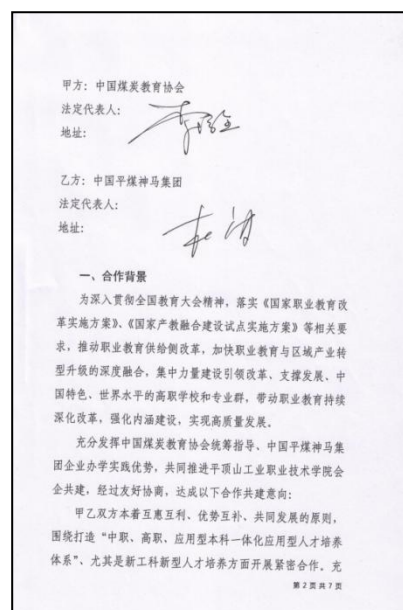 甲方：中国煤炭教育协会
法定代表人：
地址：
乙方：中国平煤神马集团
法定代表人：
地址：
一、合作背景
为深入贯彻全国教育大会精神，落实《国家职业教育改
革实施方案》、《国家产教融合建设试点实施方案》等相关要
求，推动职业教育供给侧改革，加快职业教育与区域产业转
型升级的深度融合，集中力量建设引领改革、支撑发展、中
国特色、世界水平的高职学校和专业群，带动职业教育持续
深化改革，强化内涵建设，实现高质量发展。
充分发挥中国煤炭教育协会统筹指导、中国平煤神马集
团企业办学实践优势，共同推进平顶山工业职业技术学院会
企共建，经过友好协商，达成以下合作共建意向：
甲乙双方本着互惠互利、优势互补、共同发展的原则，
围绕打造“中职、高职、应用型本科一体化应用型人才培养
体系”、尤其是新工科新型人才培养方面开展紧密合作。充
第 2 页 共 7 页